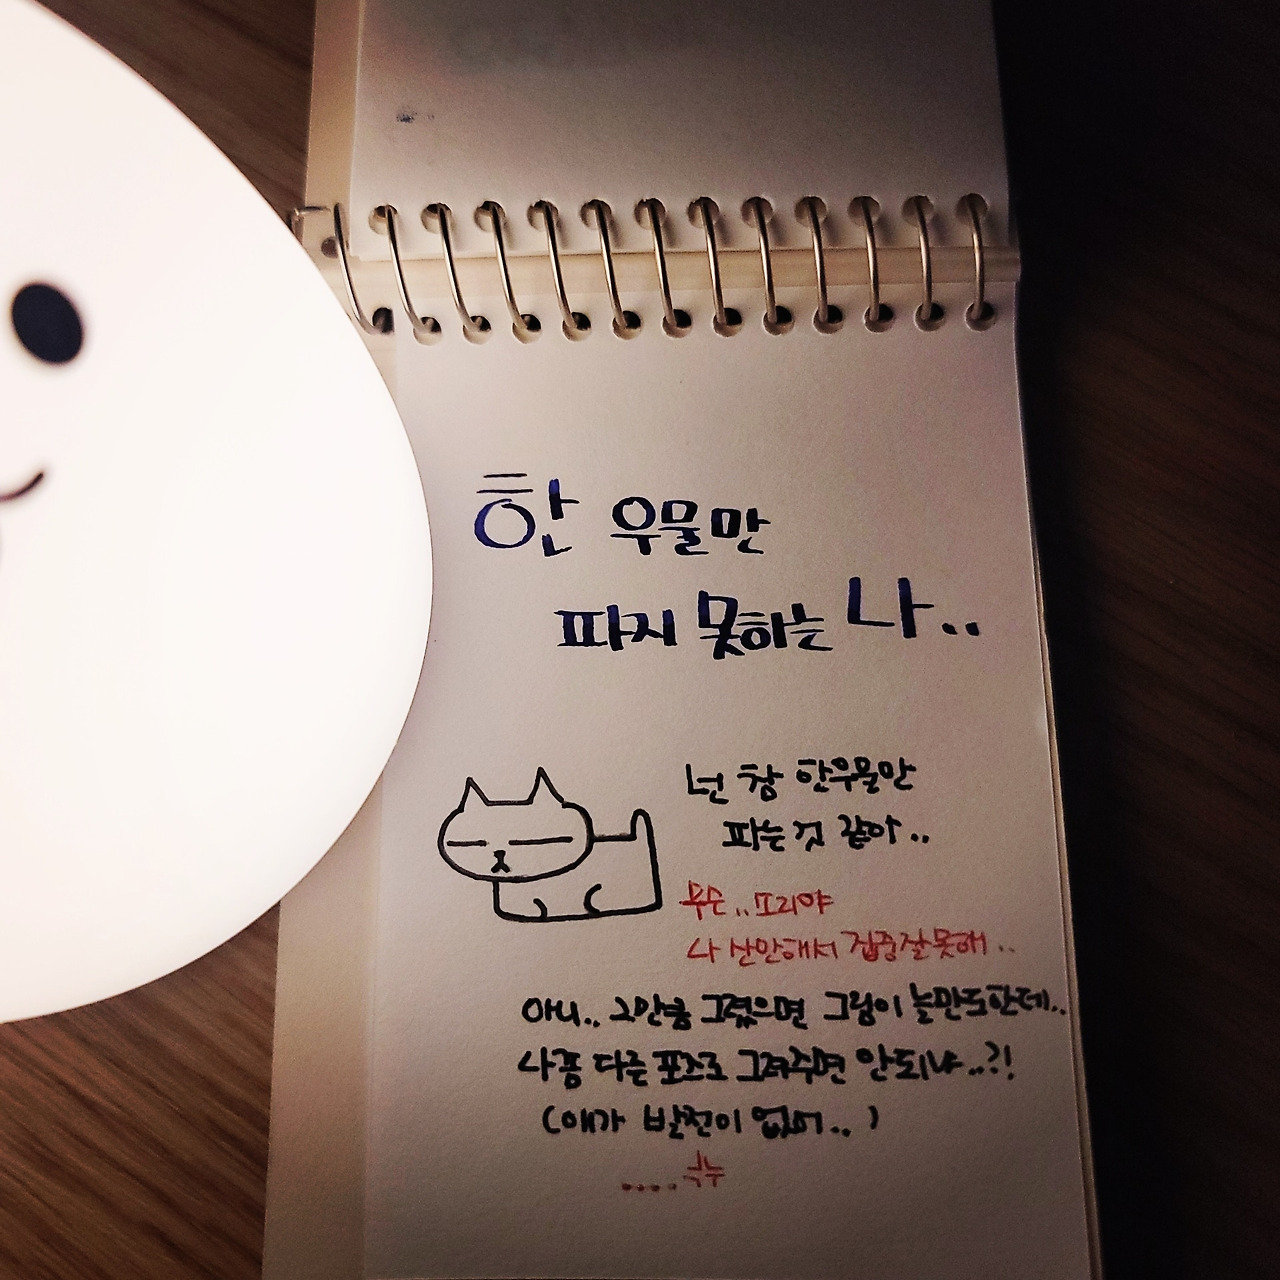 한 우물만
파지 못하는 나..
넌 참 한우물만
파는것 같아..
무슨..소리야
나 산만해서 집중잘못해..
아니.. 그만큼 그렸으면 그림이 늘만도한데..
나좀 다른 포즈로 그려주면 안되냐..?!
(애가 발전이 없어..)
....